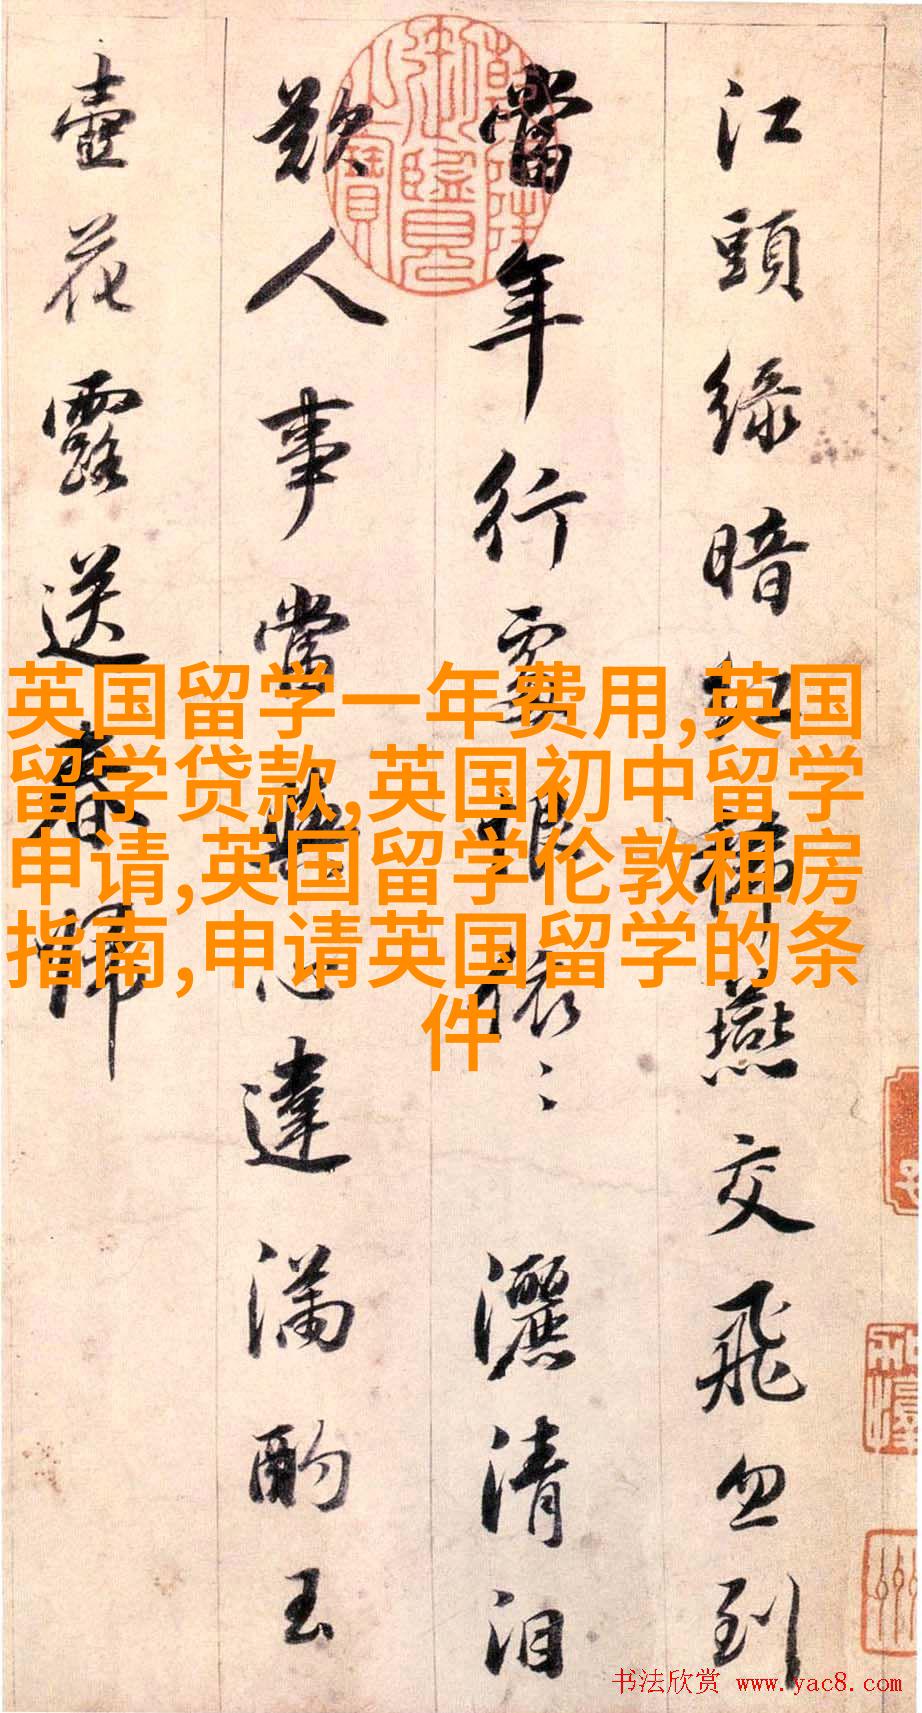 江頭綠暗紅稀燕交飛忽到
當年行處恨依〻灑清淚
歎人事當 心違滿酌玉
壺花露送春歸
乾隆御覽之寶
英国留学一年费用,英国
留学贷款,英国初中留学
申请,英国留学伦敦租房
指南,申请英国留学的条
件
书法欣赏 www.yac8.com